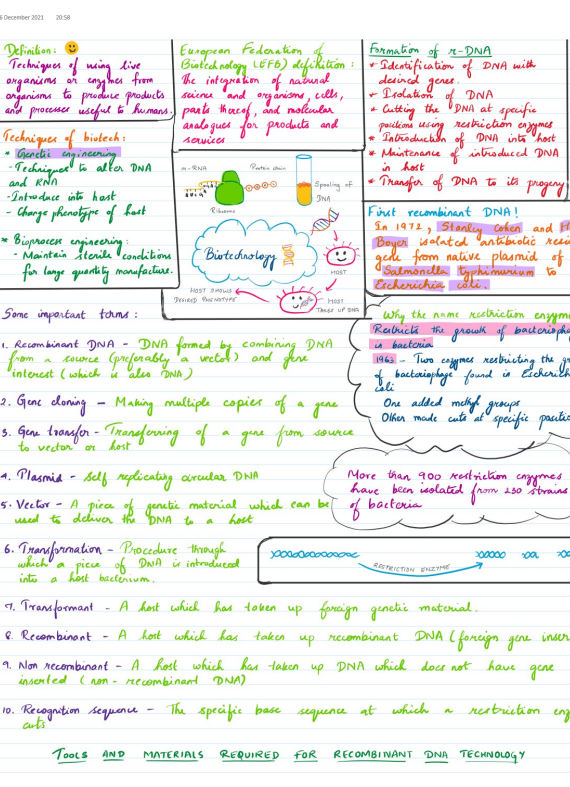 6 December 2021 20:58
Definition:
Techniques of using live
organisms or enzymes from
organisms to produce products
and processes useful to humans.
European Federation of
Biotechnology (EFB) definition:
The integration of natural
science and organisms, cells,
parts thereof, and molecular
analogues for products and
services
Formation of r-DNA
* Identification of DNA with
desired genes.
* Isolation of DNA
* Cutting the DNA at specific
positions using restriction enzymes
* Introduction of DNA into host
* Maintenance of introduced DNA
in host
* Transfer of DNA to its progeny
Techniques of biotech:
* Genetic engineering
- Techniques to alter DNA
and RNA
- Introduce into host
- Change phenotype of host
* Bioprocess engineering:
- Maintain sterile conditions
for large quantity manufacture.
m-RNA
Protein chain
Ribosome
Spooling of
DNA
Biotechnology
HOST
HOST SHOWS
DESIRED PHENOTYPE
HOST
TAKES UP DNA
First recombinant DNA!
In 1972, Stanley Cohen and
Boyer isolated antibiotic
gene from native plasmid of
Salmonella typhimurium to
Escherichia coli.
Some important terms:
1. Recombinant DNA - DNA formed by combining DNA
from a source (preferably a vector) and gene
interest (which is also DNA)
2. Gene cloning - Making multiple copies of a gene
3. Gene transfer - Transferring of a gene from source
to vector or host
4. Plasmid - Self replicating circular DNA
5. Vector - A piece of genetic material which can be
used to deliver the DNA to a host
Why the name restriction
Restricts the growth of
in bacteria
1963 - Two enzymes restricting the
of bacteriophage found in
coli
One added methyl groups
Other made cuts at specific
More than 900 restriction enzymes
have been isolated from 230 strains
of bacteria
6. Transformation - Procedure through
which a piece of DNA is introduced
into a host bacterium.
RESTRICTION ENZYME
7. Transformant - A host which has taken up foreign genetic material.
8. Recombinant - A host which has taken up recombinant DNA (foreign gene
9. Non recombinant - A host which has taken up DNA which does not have gene
inserted (non-recombinant DNA)
10. Recognition sequence - The specific base sequence at which a restriction
cuts
TOOLS AND MATERIALS REQUIRED FOR RECOMBINANT DNA TECHNOLOGY